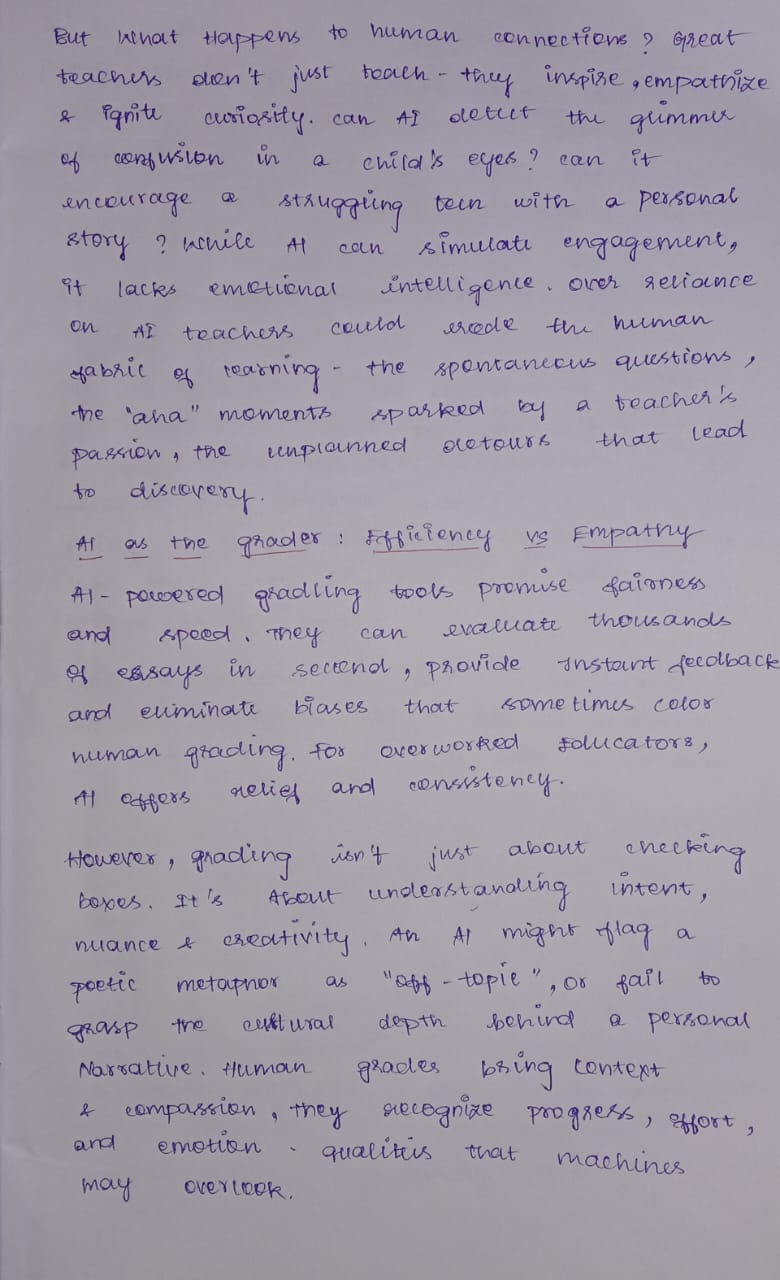 But What Happens to human connections? Great
teachers don't just teach - they inspire, empathize
& ignite curiosity. can AI detect the glimmer
of confusion in a child's eyes? can it
encourage a struggling teen with a personal
story? While AI can simulate engagement,
it lacks emotional intelligence. over reliance
on AI teachers could erode the human
fabric of learning - the spontaneous questions,
the "aha" moments sparked by a teacher's
passion, the unplanned detours that lead
to discovery.
AI as the grader: Efficiency vs Empathy
AI-powered gradling tools promise fairness
and speed. They can evaluate thousands
of essays in second, provide Instant feedback
and eliminate biases that sometimes color
human grading. for overworked Educators,
AI offers relief and consistency.
However, grading isn't just about checking
boxes. It's About understanding intent,
nuance & creativity. An AI might flag a
poetic metaphor as "off-topic", or fail to
grasp the cultural depth behind a personal
Narrative. Human grades bring context
& compassion, they recognize progress, effort,
and emotion - qualiteis that machines
may overlook.